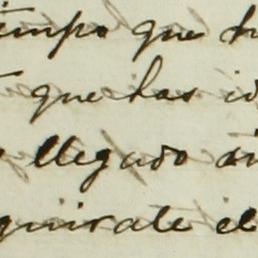 tiempo que h
que has id
llegado sin
quirate el